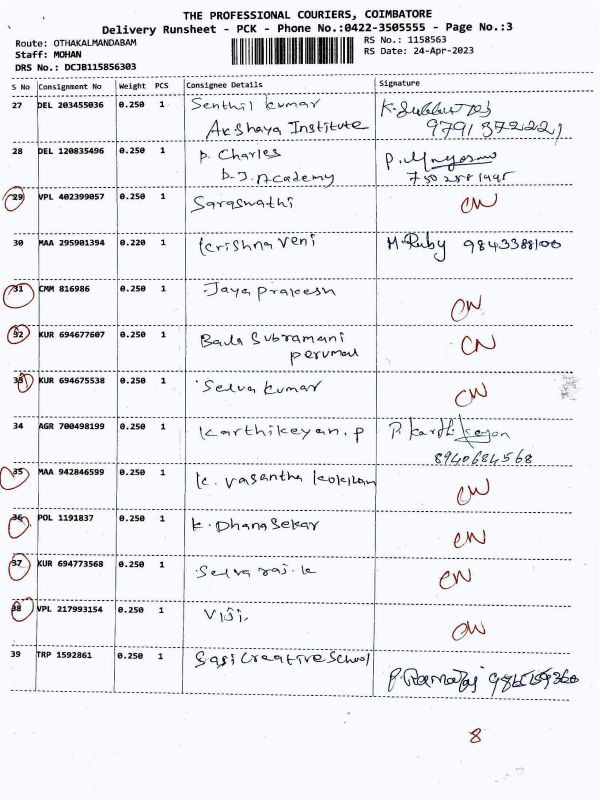 THE PROFESSIONAL COURIERS, COIMBATORE
Delivery Runsheet - PCK - Phone No.:0422-3505555 - Page No.:3
Route: OTHAKALMANDABAM
RS No.: 1158563
Staff: MOHAN
RS Date: 24-Apr-2023
DRS No.: DCJB115856303
S No Consignment No Weight PCS Consignee Details Signature
27 DEL 203455036 0.250 1 Senthil kumar
Akshaya Institute
28 DEL 120835496 0.250 1 P. Charles P.
D.J. Academy
29 VPL 402399057 0.250 1 Saraswathi CN
30 MAA 295901394 0.220 1 Krishna Veni M. Ruby 9843388100
31 CMM 816986 0.250 1 Jaya prakesh CN
32 KUR 694677607 0.250 1 Bala Subramani CN
perumal
33 KUR 694675538 0.250 1 Selva kumar CN
34 AGR 700498199 0.250 1 Karthikeyan. P P. Karthikeyan
8940684568
35 MAA 942846599 0.250 1 K. Vasantha kokilam CN
36 POL 1191837 0.250 1 K. Dhana Sekar CN
37 KUR 694773568 0.250 1 Selva raj. K CN
38 VPL 217993154 0.250 1 Viji. CN
39 TRP 1592861 0.250 1 Sasi Creative School
8